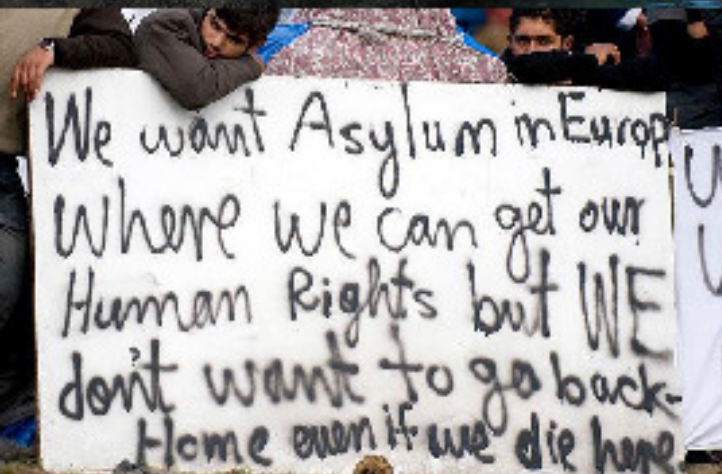 We want Asylum in Europ
Where we can get our
Human Rights but WE
don't want to go back-
Home even if we die here